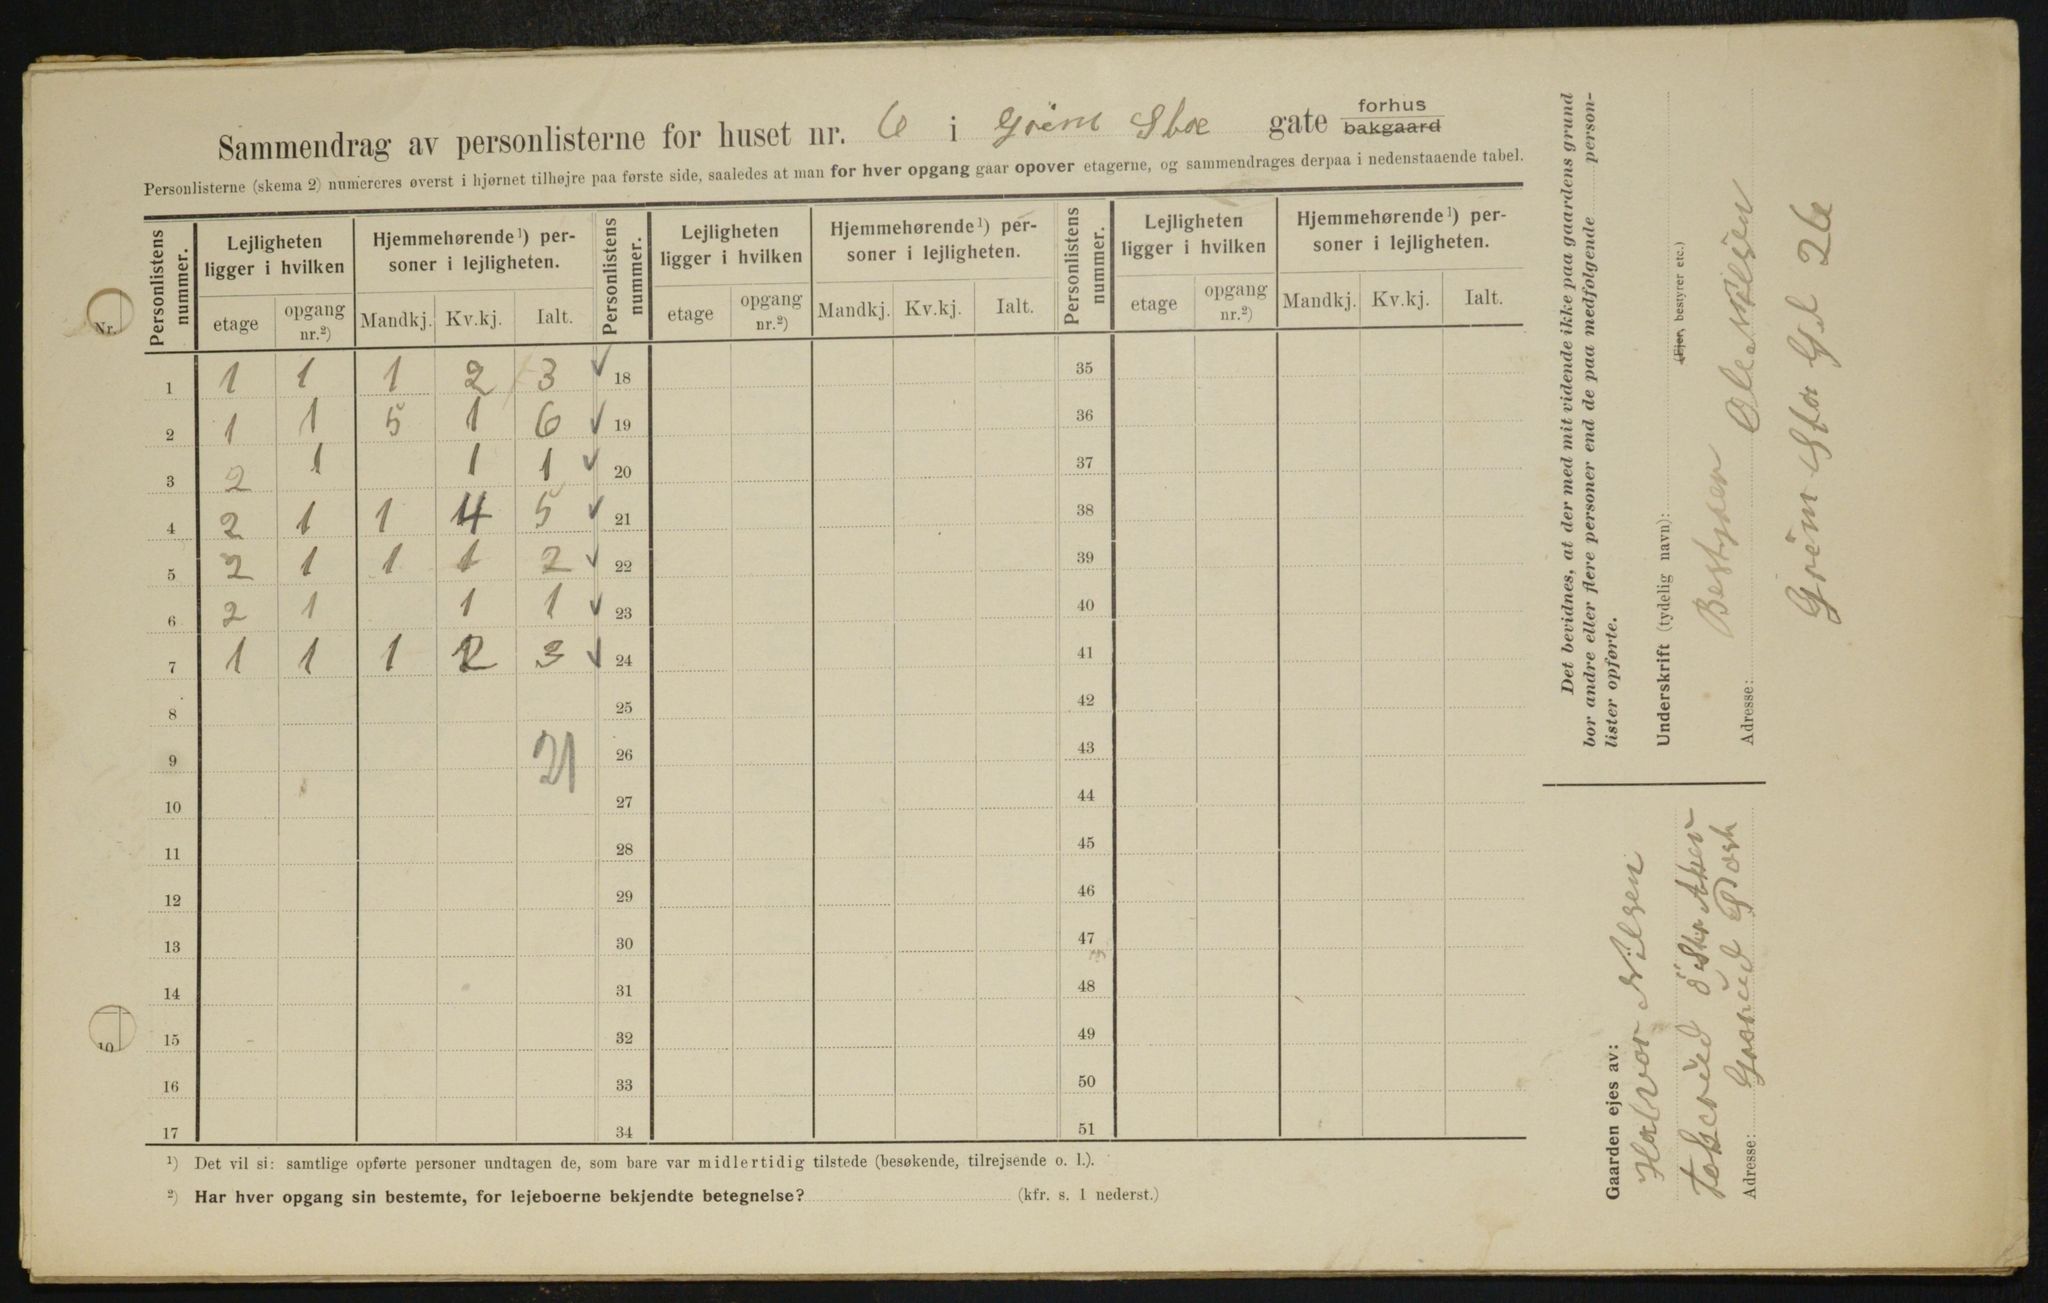 Sammendrag av personlisterne for huset nr. 6 i gate forhus bakgaard
Personlisterne (skema 2) numereres øverst i hjørnet tilhøjre paa første side, saaledes at man for hver opgang gaar opover etagerne, og sammendrages derpaa i nedenstaaende tabel.
Personlistens nummer. Lejligheten ligger i hvilken Hjemmehørende¹) personer i lejligheten. Personlistens nummer. Lejligheten ligger i hvilken Hjemmehørende¹) personer i lejligheten. Personlistens nummer. Lejligheten ligger i hvilken Hjemmehørende¹) personer i lejligheten.
etage opgang nr.²) Mandkj. Kv.kj. Ialt. etage opgang nr.²) Mandkj. Kv.kj. Ialt. etage opgang nr.²) Mandkj. Kv.kj. Ialt.
1 1 1 1 2 3 18 35
2 1 1 5 1 6 19 36
3 2 1 1 1 20 37
4 2 1 1 4 5 21 38
5 2 1 1 1 2 22 39
6 2 1 1 1 23 40
7 1 1 1 2 3 24 41
8 25 42
9 21 26 43
10 27 44
11 28 45
12 29 46
13 30 47
14 31 48
15 32 49
16 33 50
17 34 51
¹) Det vil si: samtlige opførte personer undtagen de, som bare var midlertidig tilstede (besøkende, tilrejsende o. l.).
²) Har hver opgang sin bestemte, for lejeboerne bekjendte betegnelse? (kfr. s. 1 nederst.)
Nr.
10
Det bevidnes, at der med mit vidende ikke paa gaardens grund
bor andre eller flere personer end de paa medfølgende person-
lister opførte.
Underskrift (tydelig navn): (Ejer, bestyrer etc.)
Bestyrer Ole Nilsen
Adresse:
26
Gaarden ejes av:
Halvor Nilsen
Adresse: